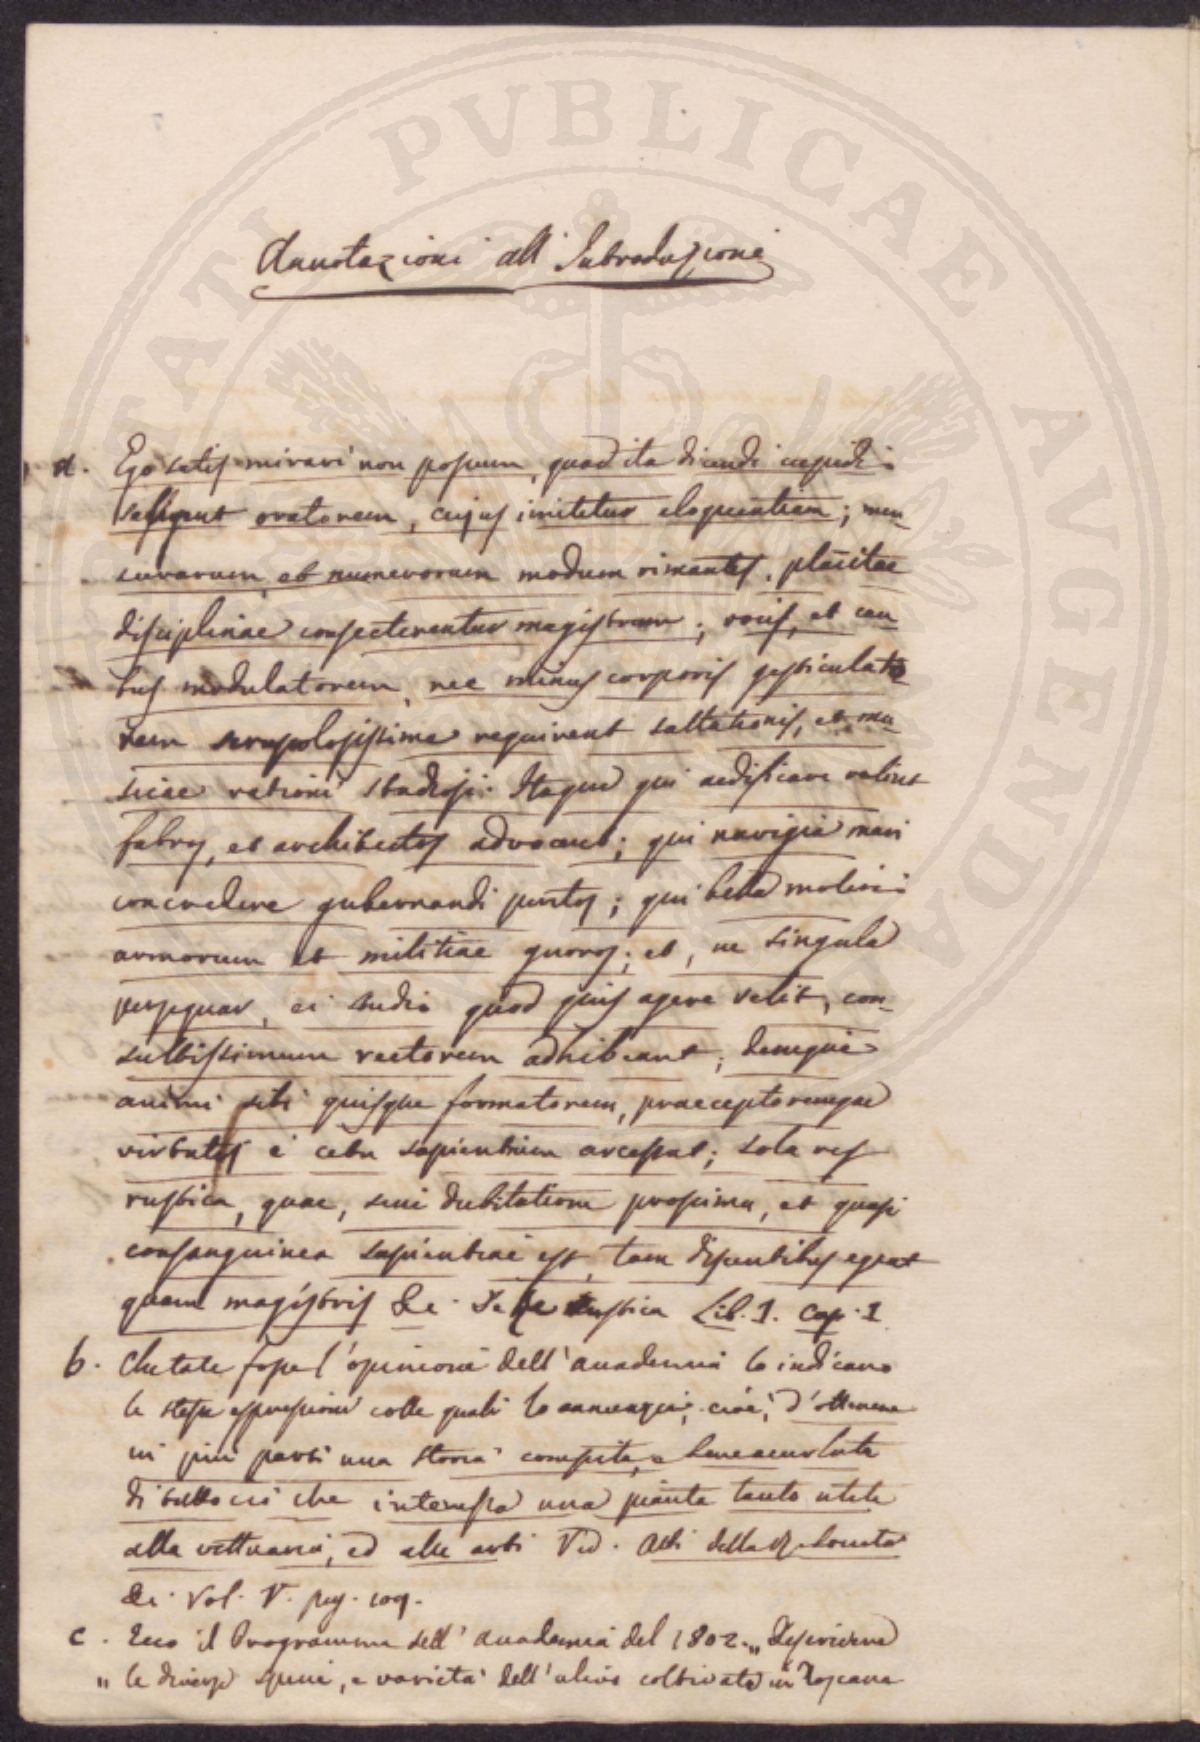 PVBLICAE
AVGENDAE
Annotazioni all'Introduzione
a. Ego satis mirari non possum, quod ita dicendi cupidi
seligant oratorem, cujus imitetur eloquentiam; men-
surarum et numerorum modum rimantes, placitae
disciplinae consecterentur magistrum; vocis, et can
tus modulatorem, nec minus corporis gesticulato
rem scrupolosissime requirent saltationis, et mu
sicae rationi studiosi. Itaque qui aedificare velint
fabros, et architectos advocant; qui navigia mari
concredere gubernandi peritos; qui bella moliri
armorum et militiae gnaros; et, ne singula
persequar, ei studio quod quis agere velit, con-
sultissimum rectorem adhibeant; denique
animi sibi quisque formatorem, praeceptoremque
virtutis e cetu sapientium arcessat; sola res
rustica, quae, sine dubitatione proxima, et quasi
consanguinea sapientiae est, tam discentibus egeat
quam magistris De Re Rustica Lib. 1. cap. 1
b. Che tale fosse l'opinione dell'Accademia lo indicano
le stesse espressioni colle quali lo annunzia, cioè, d'ottenere
in più parti una storia compita, e bene accurata
di tutto ciò che interessa una pianta tanto utile
alla vettuaria, ed alle arti Ved. Atti della R. Società
Vol. V. pag. 109.
c. Ecco il Programma dell'Accademia del 1802. „ Descrivere
„ le diverse specie, e varietà dell'ulivo coltivate in Toscana